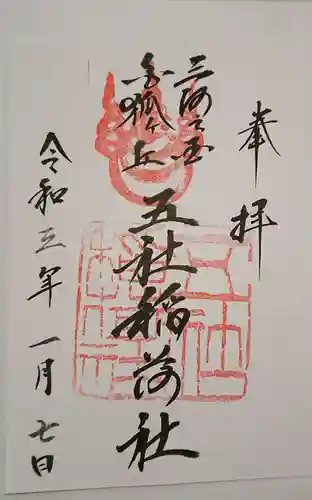 奉拝
三河之国
金狐ヶ丘
五社稲荷社
令和五年一月七日